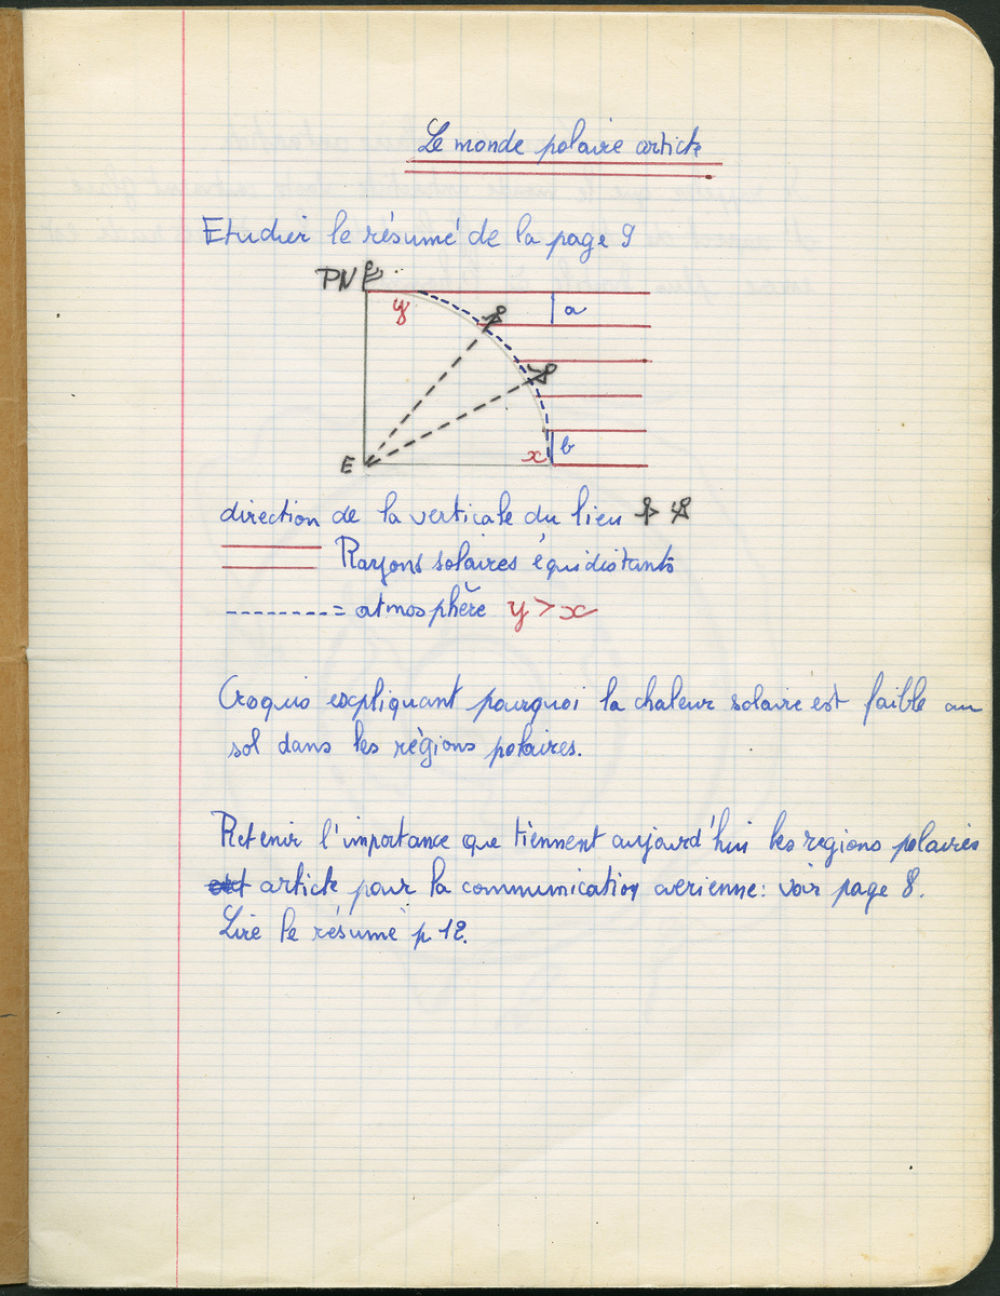 Le monde polaire article
Etudier le résumé de la page 9
PN
y
a
b
x
E
direction de la verticale du lieu
Rayons solaires équidistants
= atmosphère y > x
Croquis expliquant pourquoi la chaleur solaire est faible au
sol dans les règions polaires.
Retenir l'importance que tiennent aujourd'hui les regions polaires
article pour la communication aerienne: voir page 8.
Lire le résumé p 12.